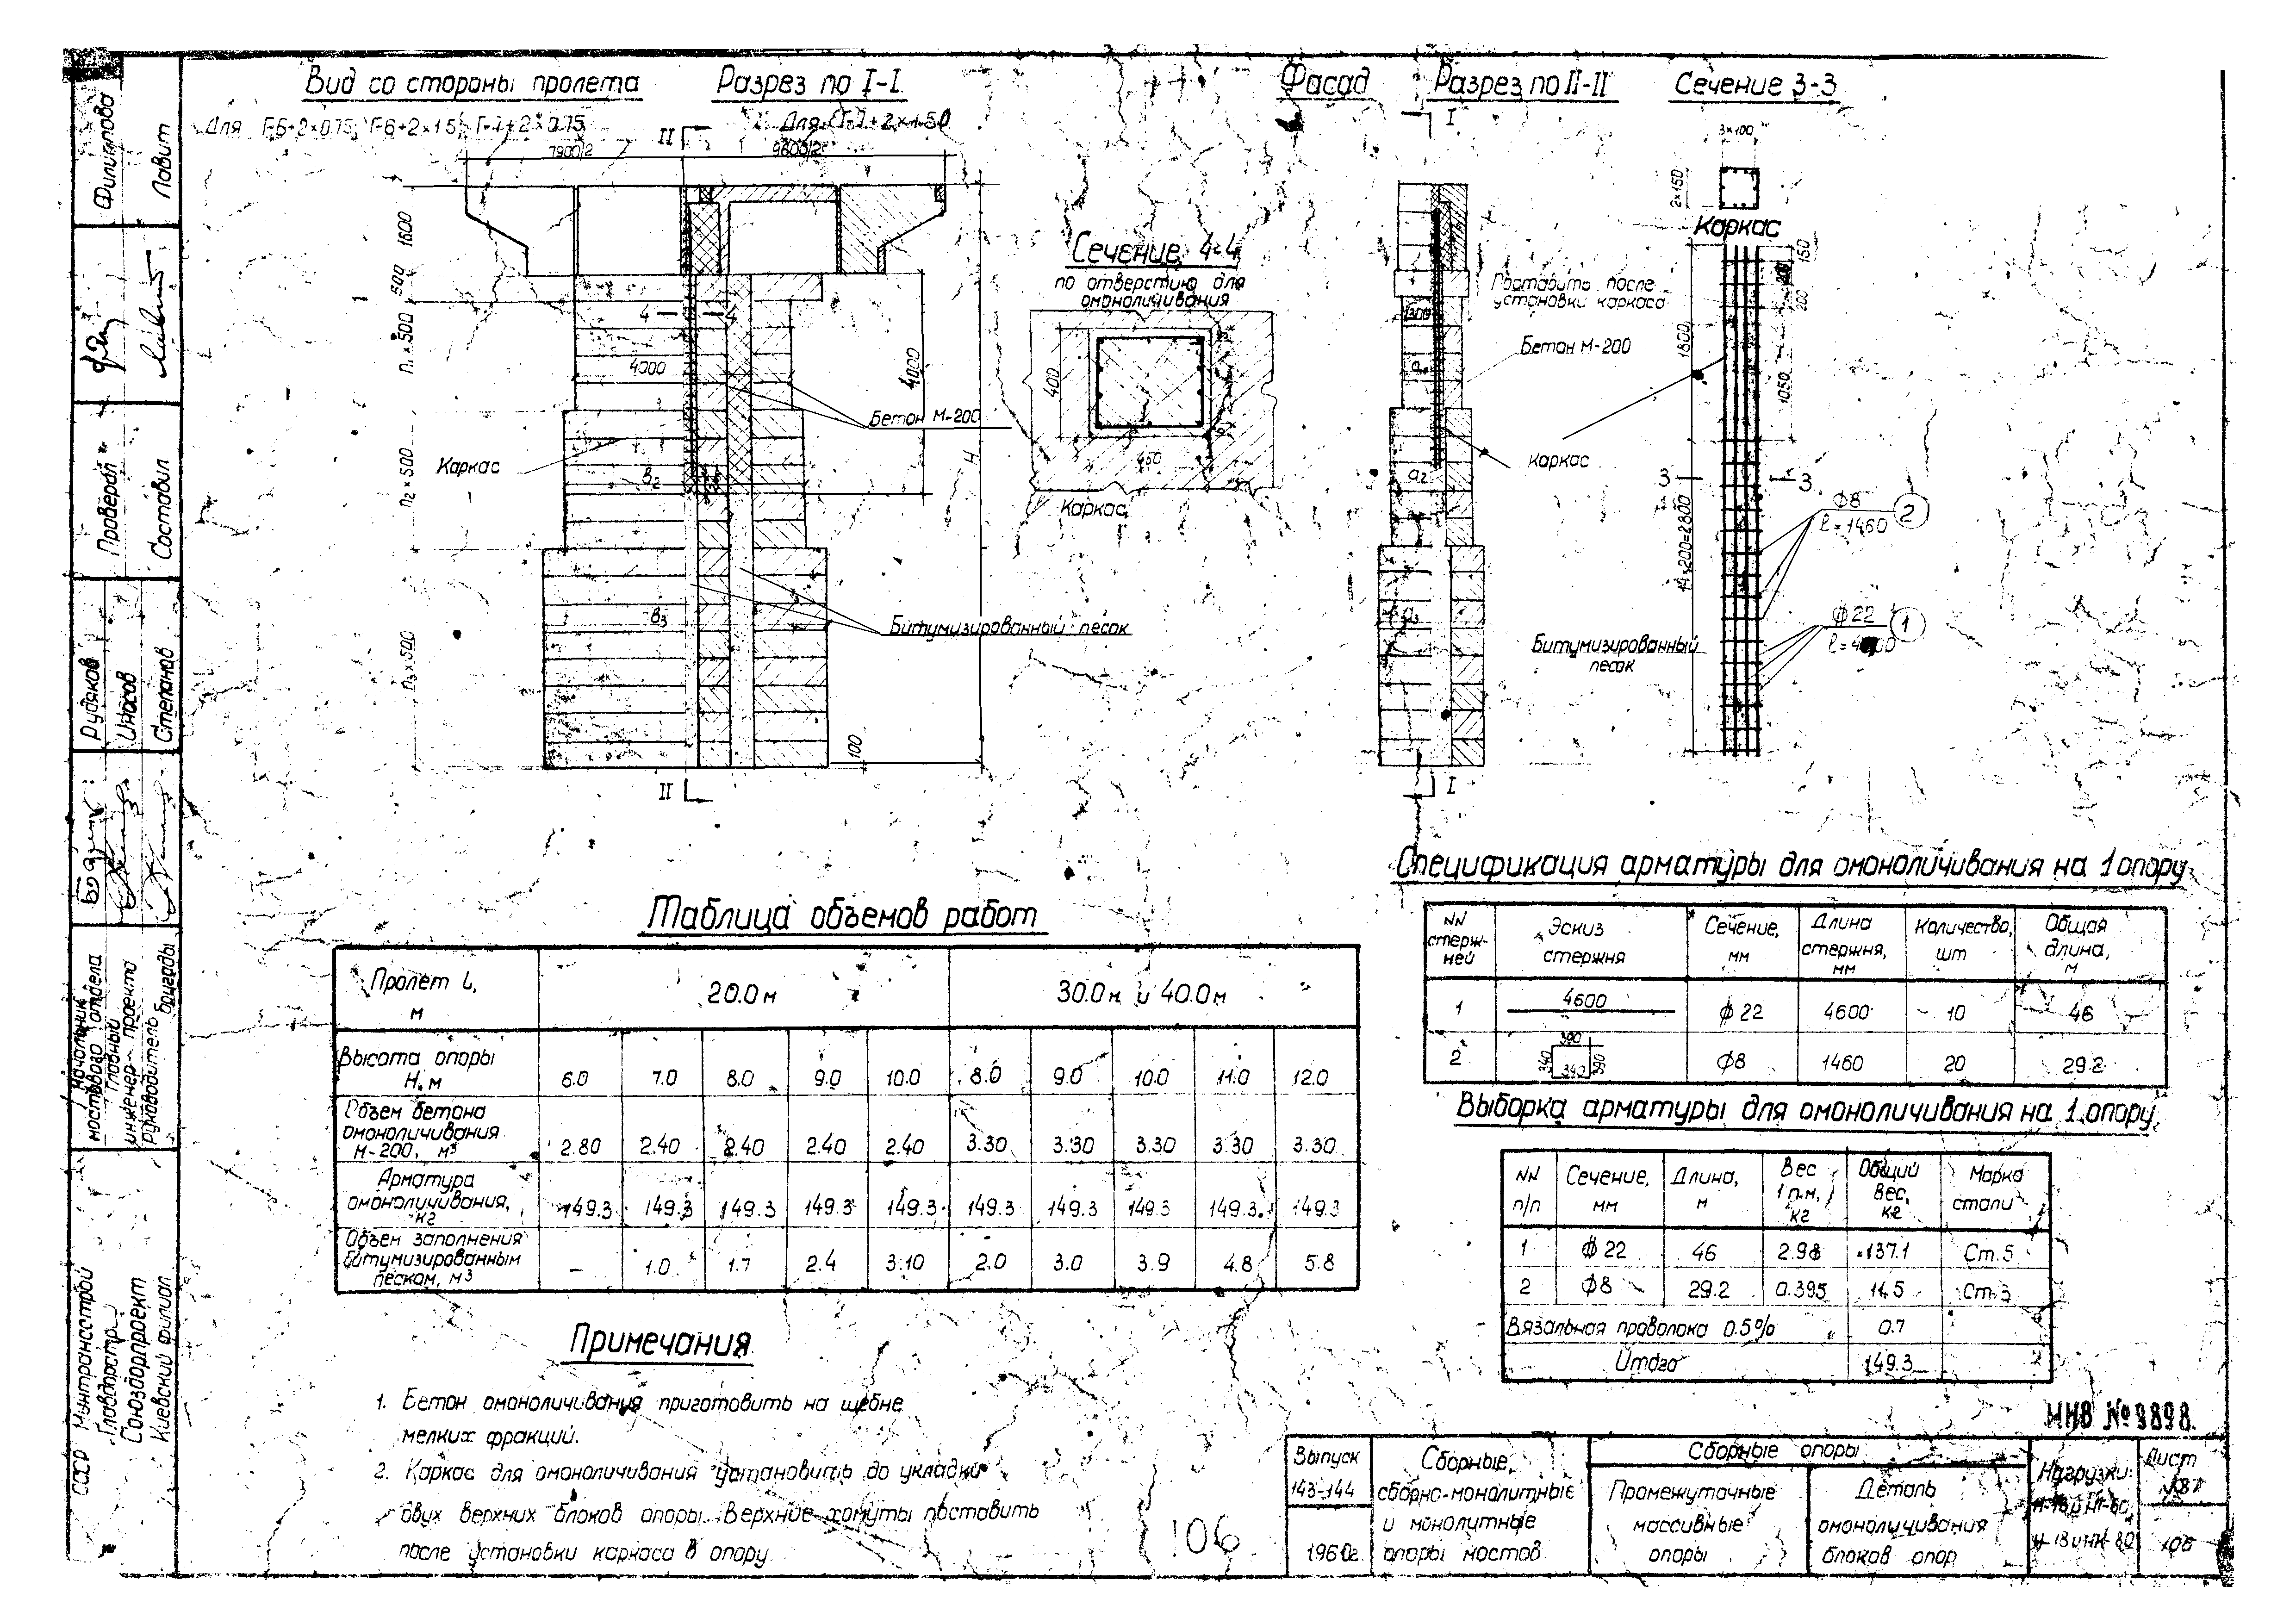 Вид со стороны пролета
Для Г-6+2×0.75; Г-6+2×1.5; Г-7+2×0.75
Разрез по I-I
Для Г-7+2×1.50
Фасад
Разрез по II-II
Сечение 3-3
II
7900/2
9600/2
1600
500
n₁×500
n₂×500
n₃×500
4
4
4000
4000
Каркас
Бетон М-200
в₂
в₃
Битумизированный песок
Н
100
II
Сечение 4-4
по отверстию для
омоноличивания
400
450
Каркас
I
1300
а₂
Поставить после
установки каркаса
Бетон М-200
Каркас
Битумизированный
песок
I
3×100
2×150
Каркас
150
200
1800
1050
14×200=2800
3
3
ф8
ℓ=1460
2
ф22
1
Таблица объемов работ
Пролет L,
м
20.0м
30.0м и 40.0м
Высота опоры
Н, м
6.0 7.0 8.0 9.0 10.0 8.0 9.0 10.0 11.0 12.0
Объем бетона
омоноличивания
М-200, м³
2.80 2.40 2.40 2.40 2.40 3.30 3.30 3.30 3.30 3.30
Арматура
омоноличивания,
кг
149.3 149.3 149.3 149.3 149.3 149.3 149.3 149.3 149.3 149.3
Объем заполнения
битумизированным
песком, м³
— 1.0 1.7 2.4 3.10 2.0 3.0 3.9 4.8 5.8
Примечания
1. Бетон омоноличивания приготовить на щебне
мелких фракций.
2. Каркас для омоноличивания установить до укладки
двух верхних блоков опоры. Верхние хомуты поставить
после установки каркаса в опору.
Спецификация арматуры для омоноличивания на 1 опору
NN
стерж-
ней
Эскиз
стержня
Сечение,
мм
Длина
стержня,
мм
Количество,
шт
Общая
длина,
м
1 4600 ф22 4600 10 46
2 390 340 340 390 ф8 1460 20 29.2
Выборка арматуры для омоноличивания на 1 опору
NN
п/п
Сечение,
мм
Длина,
м
Вес
1 п.м,
кг
Общий
вес,
кг
Марка
стали
1 ф22 46 2.98 137.1 Ст.5
2 ф8 29.2 0.395 11.5 Ст.3
Вязальная проволока 0.5% 0.7
Итого 149.3
ИНВ № 9898
106
Выпуск
143-144
1960г.
Сборные,
сборно-монолитные
и монолитные
опоры мостов
Сборные опоры
Промежуточные
массивные
опоры
Деталь
омоноличивания
блоков опор
Нагрузки:
Н-18 и НК-80
Лист
Филиппова
Лавит
Проверил
Составил
Рудяков
Иносов
Степанов
Начальник
мостового отдела
Главный
инженер проекта
Руководитель
бригады
СССР Минтрансстрой
Главдорстрой
Союздорпроект
Киевский филиал